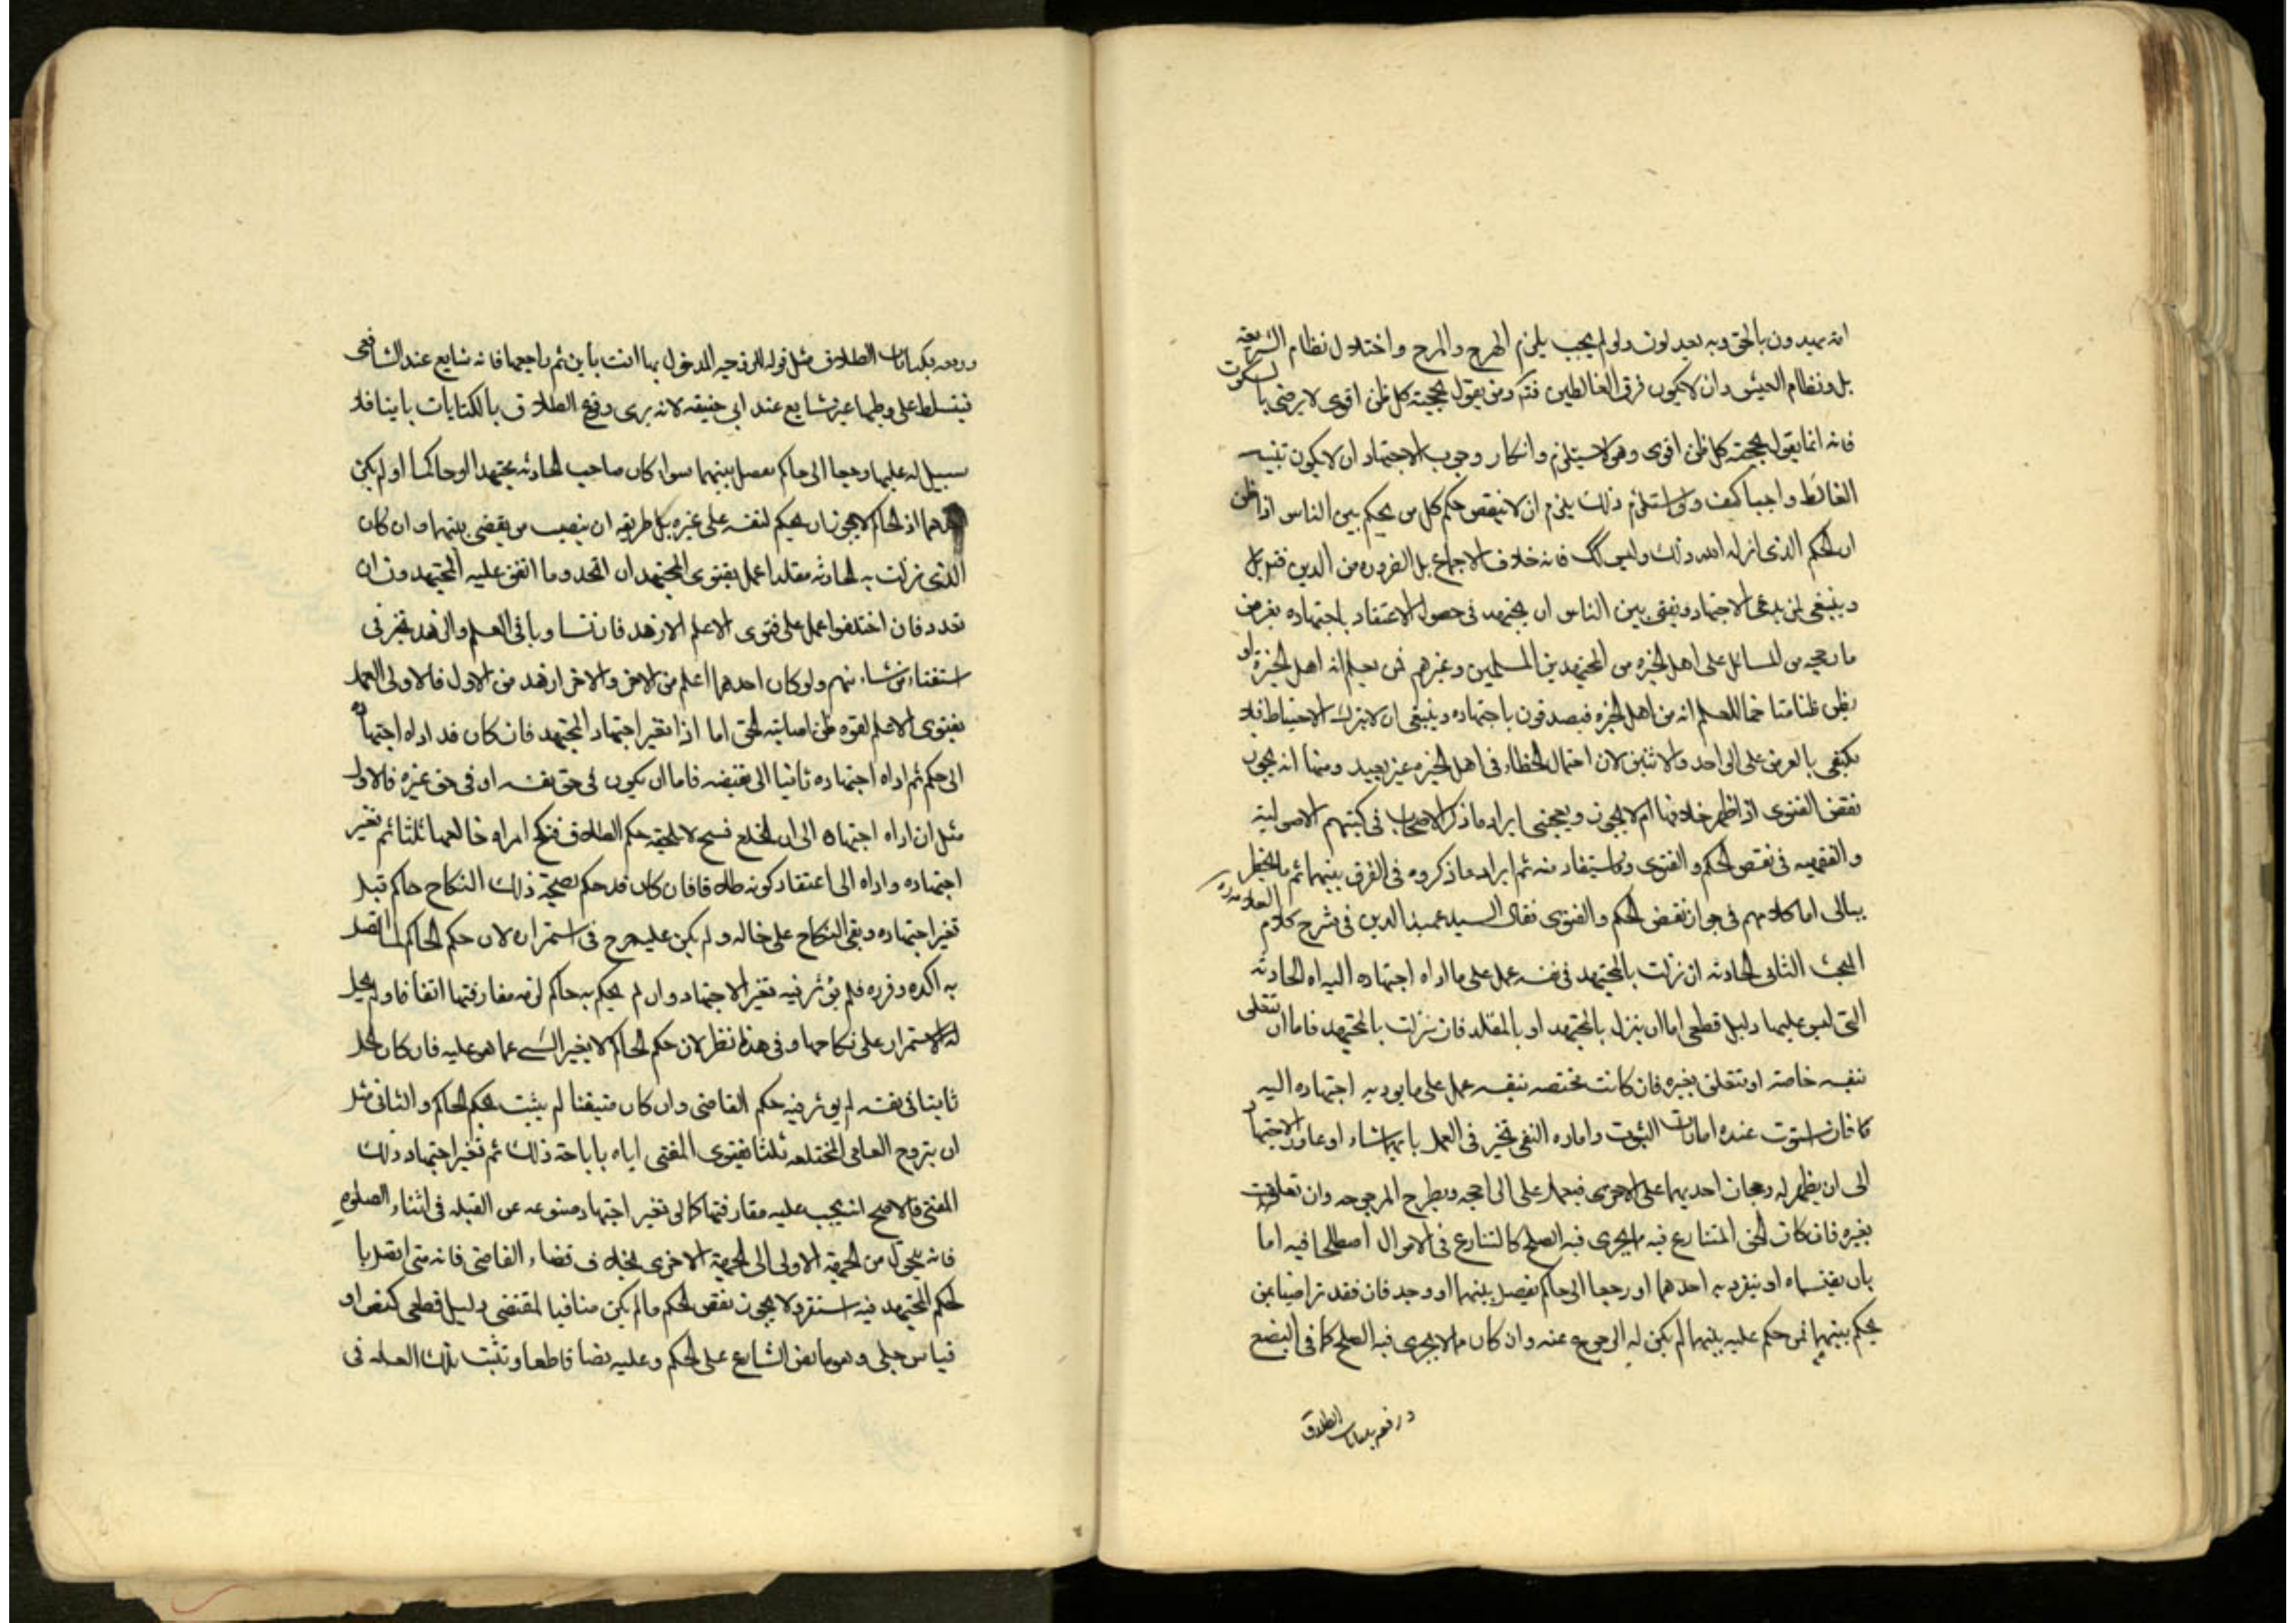 امة يهدون بالحق وبه يعدلون ولو لم يجب يلزم الهرج والمرج واختلال نظام الشريعة
بل ونظام العيش وان لا يكون فرق الغالطين فتكـ ومن يقول بحجية كل ظن اقوى لا يرضى بالسكوت
فانه انما يقول بحجية كل ظن اقوى وهى لا يستلزم وانكار وجوب الاجتهاد ان لا يكون تنبيه
الغالط واجبا كيف ولو استلزم ذلك يلزم ان لا ينقض حكم كل من يحكم بين الناس اذا ظن
ان الحكم الذى انزله الله ذلك وليس كك فانه خلاف الاجماع بل الضروره من الدين قيل بل
وينبغى لمن يدعى الاجتهاد ويفتى بين الناس ان يجتهد فى حصول الاعتقاد باجتهاده بعرض
ما رجحه من المسائل على اهل الخبره من المجتهدين المسلمين وغيرهم ممن يعلم انه اهل الخبرة او
يظن ظنا متاخما للعلم انه من اهل الخبره فيصدقون باجتهاده وينبغى ان لا يترك الاحتياط فلا
يكتفى بالعرض على الواحد والاثنين لان احتمال الخطاء فى اهل الخبره غير بعيد ومنها انه يجوز
نقض الفتوى اذا ظهر خلافها ام لا يجوز ويعجبنى ايراد ما ذكر الاصحاب فى كتبهم الاصولية
والفقهيه فى نقض الحكم والفتوى وما يستفاد منه ثم ايراد ما ذكروه فى الفرق بينهما ثم ما يخطر
ببالى اما كلامهم فى جواز نقض الحكم والفتوى فقال السيد عميد الدين فى شرح كلام العلامة ره
البحث الثانى الحادثه ان نزلت بالمجتهد فى نفسه عمل على ما اداه اجتهاده اليه اه الحادثه
التى ليس عليها دليل قطعى اما ان ينزل بالمجتهد او بالمقلد فان نزلت بالمجتهد فاما ان تتعلق
بنفسه خاصة او تتعلق بغيره فان كانت مختصه بنفسه عمل على ما يوديه اجتهاده اليه
فان استوت عنده امارات الثبوت واماره النفى تخير فى العمل بايهما شاء او عاود الاجتهاد
الى ان يظهر له رجحان احديهما على الاخرى فيعمل على الراجحه ويطرح المرجوحه وان تعلقت
بغيره فان كان الحق المتنازع فيه ما يجرى فيه الصلح كالتنازع فى الاموال اصطلحا فيه اما
بان يقتسماه او ينفرد به احدهما او رجعا الى حاكم يفصل بينهما او وجد فان فقد تراضيا بمن
يحكم بينهما فمن حكم عليه بينهما لم يكن له الرجوع عنه وان كان ما لا يجرى فيه الصلح كما فى البضع
الطلاق
الطلاق مثل قوله لزوجه المدخول بها انت باين ثم راجعها فانه شايع عند الشافعى
فيتسلط على وطيها غير شايع عند ابى حنيفه لانه يرى وقوع الطلاق بالكنايات باينا فلا
سبيل له عليها رجعا الى حاكم يفصل بينهما سواء كان صاحب الحادثه مجتهدا او حاكما او لم يكن
اذ الحاكم لا يجوز ان يحكم لنفسه على غيره بل طريقه ان ينصب من يقضى بينهما وان كان
الذى نزلت به الحادثه مقلدا عمل بفتوى المجتهد ان اتحد وما اتفق عليه المجتهدون ان
تعدد فان اختلفوا عمل على فتوى الاعلم الازهد فان تساويا فى العلم والزهد تخير فى
استفتاء من شاء منهم ولو كان احدهما اعلم من الاخر والاخر ازهد من الاول فالاولى العمل
بفتوى الاعلم لقوه ظن اصابته الحق اما اذا تغير اجتهاد المجتهد فان كان قد اداه اجتهاده
الى حكم ثم اداه اجتهاده ثانيا الى نقيضه فاما ان يكون فى حق نفسه او فى حق غيره فالاول
مثل ان اداه اجتهاده الى ان الخلع فسخ لا يلحقه حكم الطلاق فنكح امراه خالعها ثلثا ثم تغير
اجتهاده واداه الى اعتقاد كونه طلاقا فان كان قد حكم بصحة ذلك النكاح حاكم قبل
تغير اجتهاده وبقى النكاح على حاله ولم يكن عليه حرج فى استمراره لان حكم الحاكم لما اتصل
به اكده وقرره فلم يؤثر فيه تغير الاجتهاد وان لم يحكم به حاكم لزمه مفارقتها اتفاقا ولم يحل
له الاستمرار على نكاحها وفى هذا نظر لان حكم الحاكم لا يغير الشىء عما هو عليه فان كان الحل
ثابتا فى نفسه لم يوثر فيه حكم القاضى وان كان منتفيا لم يثبت بحكم الحاكم والثانى مثل
ان يتزوج العامى المختلعه ثلثا بفتوى المفتى اياه باباحة ذلك ثم تغير اجتهاد ذلك
المفتى فالاصح انه يجب عليه مفارقتها كما لو تغير اجتهاد متبوعه عن القبله فى اثناء الصلوه
فانه يتحول من الجهة الاولى الى الجهة الاخرى بخلاف قضاء القاضى فانه متى اتصل با
لحكم المجتهد فيه استقر ولا يجوز نقض الحكم ما لم يكن منافيا لمقتضى دليل قطعى كنص او
قياس جلى وهو ما نص الشارع على الحكم وعليه نصا قاطعا وتثبت تلك العله فى